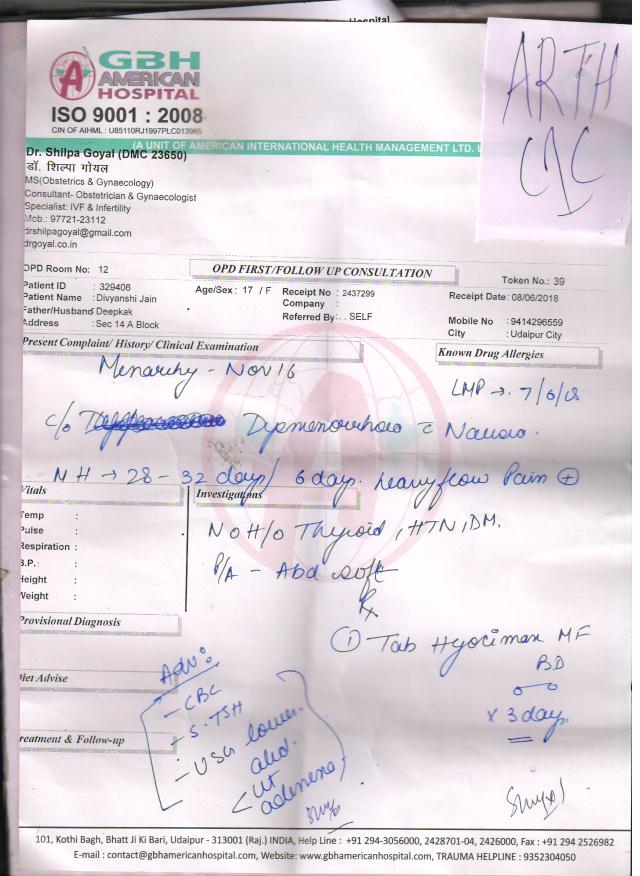 Hospital
GBH
AMERICAN
HOSPITAL
ISO 9001 : 2008
CIN OF AIHML : U85110RJ1997PLC013965
(A UNIT OF AMERICAN INTERNATIONAL HEALTH MANAGEMENT LTD.
ARTH
Dr. Shilpa Goyal (DMC 23650)
डॉ. शिल्पा गोयल
MS(Obstetrics & Gynaecology)
Consultant- Obstetrician & Gynaecologist
Specialist: IVF & Infertility
Mob.: 97721-23112
drshilpagoyal@gmail.com
drgoyal.co.in
OPD Room No: 12
OPD FIRST/FOLLOW UP CONSULTATION
Token No.: 39
Patient ID : 329406
Age/Sex : 17 / F
Receipt No : 2437299
Receipt Date: 08/06/2018
Patient Name : Divyanshi Jain
Company :
Father/Husband Deepkak
Referred By: . . SELF
Mobile No : 9414296559
Address : Sec 14 A Block
City : Udaipur City
Present Complaint/ History/ Clinical Examination
Known Drug Allergies
Menarchy - Nov 16
LMP → 7/6/18
c/o Dysmenorrhoea c Nausea.
MH → 28 - 32 days / 6 days. heavy flow Pain ⊕
Vitals
Investigations
Temp :
Pulse :
Respiration :
B.P. :
Height :
Weight :
No H/o Thyroid, HTN, DM.
P/A - Abd soft
Rx
① Tab Hyocimax MF
BD
x 3 days.
Provisional Diagnosis
Diet Advise
Treatment & Follow-up
Adv:
- CBC
- S. TSH
- USG lower
abd.
< ut
adenexa
101, Kothi Bagh, Bhatt Ji Ki Bari, Udaipur - 313001 (Raj.) INDIA, Help Line : +91 294-3056000, 2428701-04, 2426000, Fax : +91 294 2526982
E-mail : contact@gbhamericanhospital.com, Website: www.gbhamericanhospital.com, TRAUMA HELPLINE : 9352304050